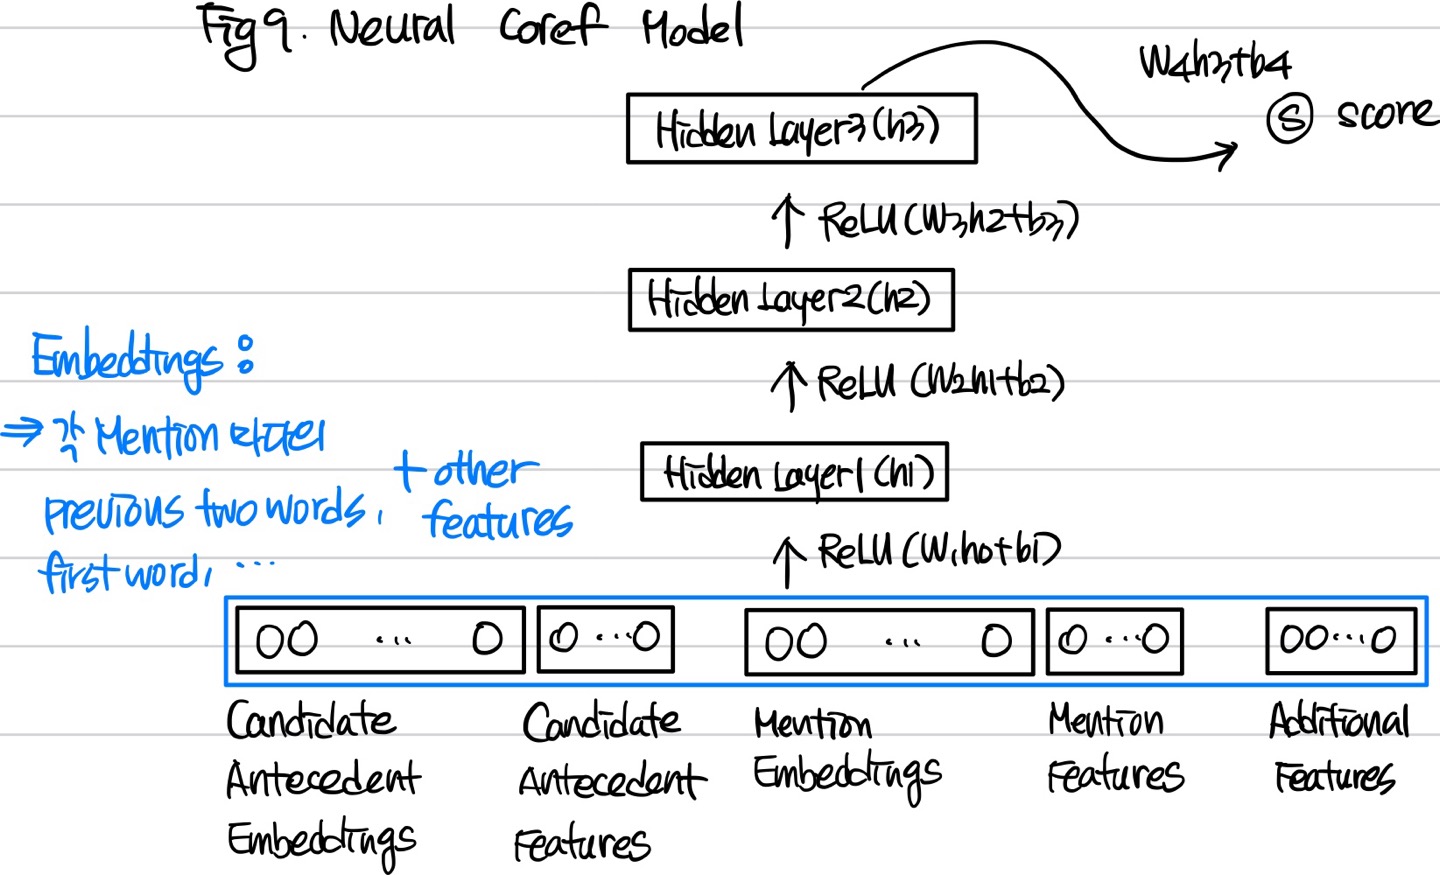 Fig 9. Neural Coref Model
W4h3+b4
Hidden Layer3(h3)
S score
↑ ReLU(W3h2+b3)
Hidden Layer2(h2)
↑ ReLU(W2h1+b2)
Hidden Layer1(h1)
↑ ReLU(W1h0+b1)
Embeddings:
⇒ 각 Mention 마다의
previous two words,
first word, ...
+ other
features
OO ... O
O ...O
OO ... O
O ...O
OO...O
Candidate
Antecedent
Embeddings
Candidate
Antecedent
Features
Mention
Embeddings
Mention
Features
Additional
Features